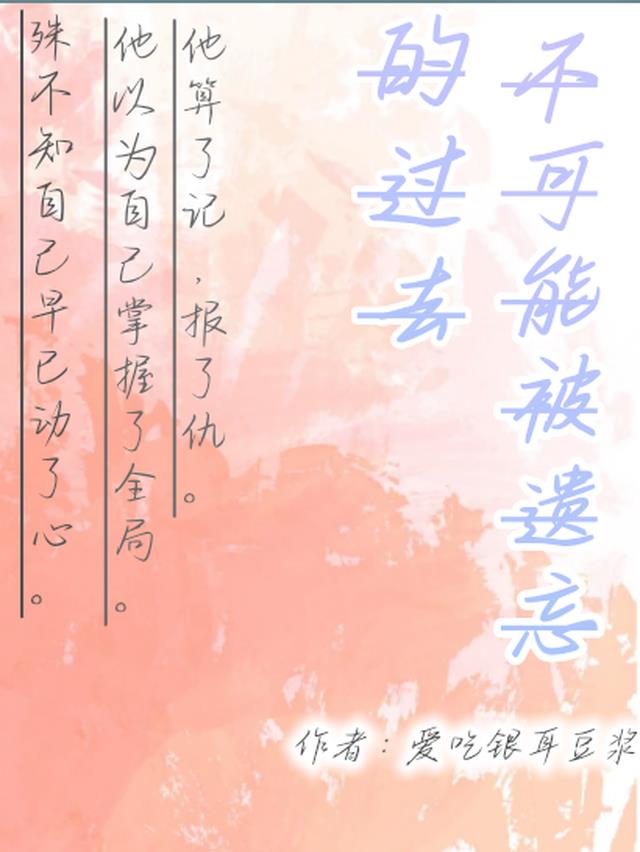 不可能被遗忘
的过去
他算了记，报了仇。
他以为自己掌握了全局。
殊不知自己早已动了心。
作者：爱吃银耳豆浆